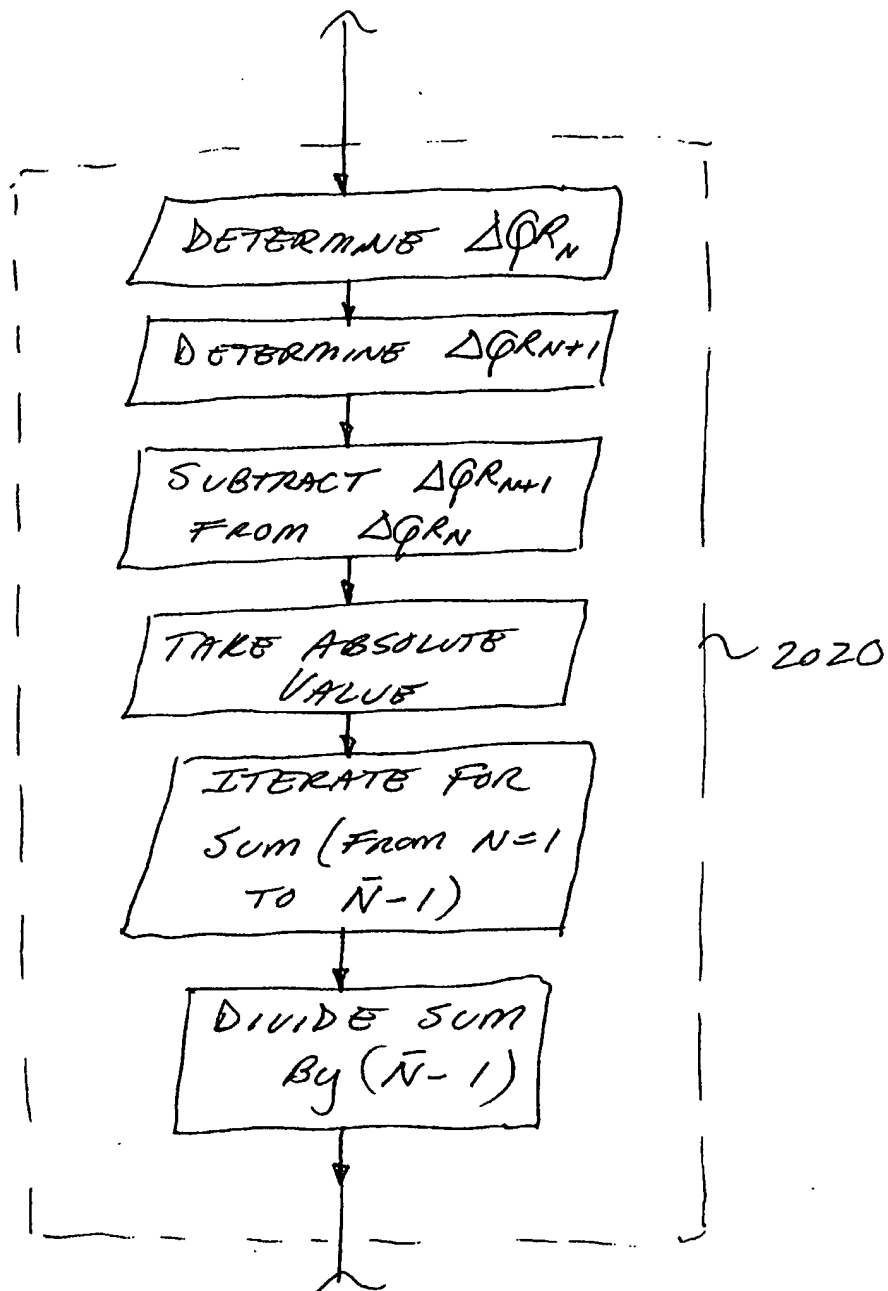 DETERMINE ΔφR_N
DETERMINE ΔφR_N+1
SUBTRACT ΔφR_N+1
FROM ΔφR_N
TAKE ABSOLUTE
VALUE
ITERATE FOR
SUM (FROM N=1
TO N̄-1)
~ 2020
DIVIDE SUM
By (N̄-1)